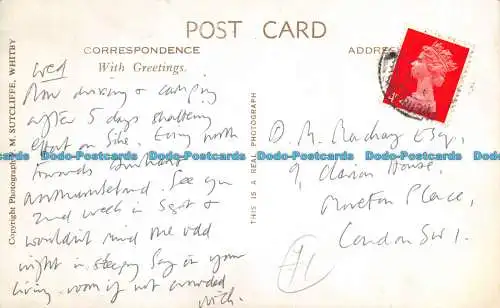 POST CARD
CORRESPONDENCE
ADDRESS
With Greetings.
Copyright Photograph by F. M. SUTCLIFFE, WHITBY
THIS IS A REAL PHOTOGRAPH
Wed
Now driving & camping
after 5 days shattering
effort on Site. Going north
towards
Northumberland. See you
2nd week in Sept &
wouldn't mind the odd
night in sleeping bag on your
living-room if not crowded
Nich.
D. M. Mackay Esq,
9, House,
Moreton Place,
London SW1.
Dodo-Postcards Dodo-Postcards Dodo-Postcards Dodo-Postcards
Dodo-Postcards Dodo-Postcards Dodo-Postcards Dodo-Postcards
£1